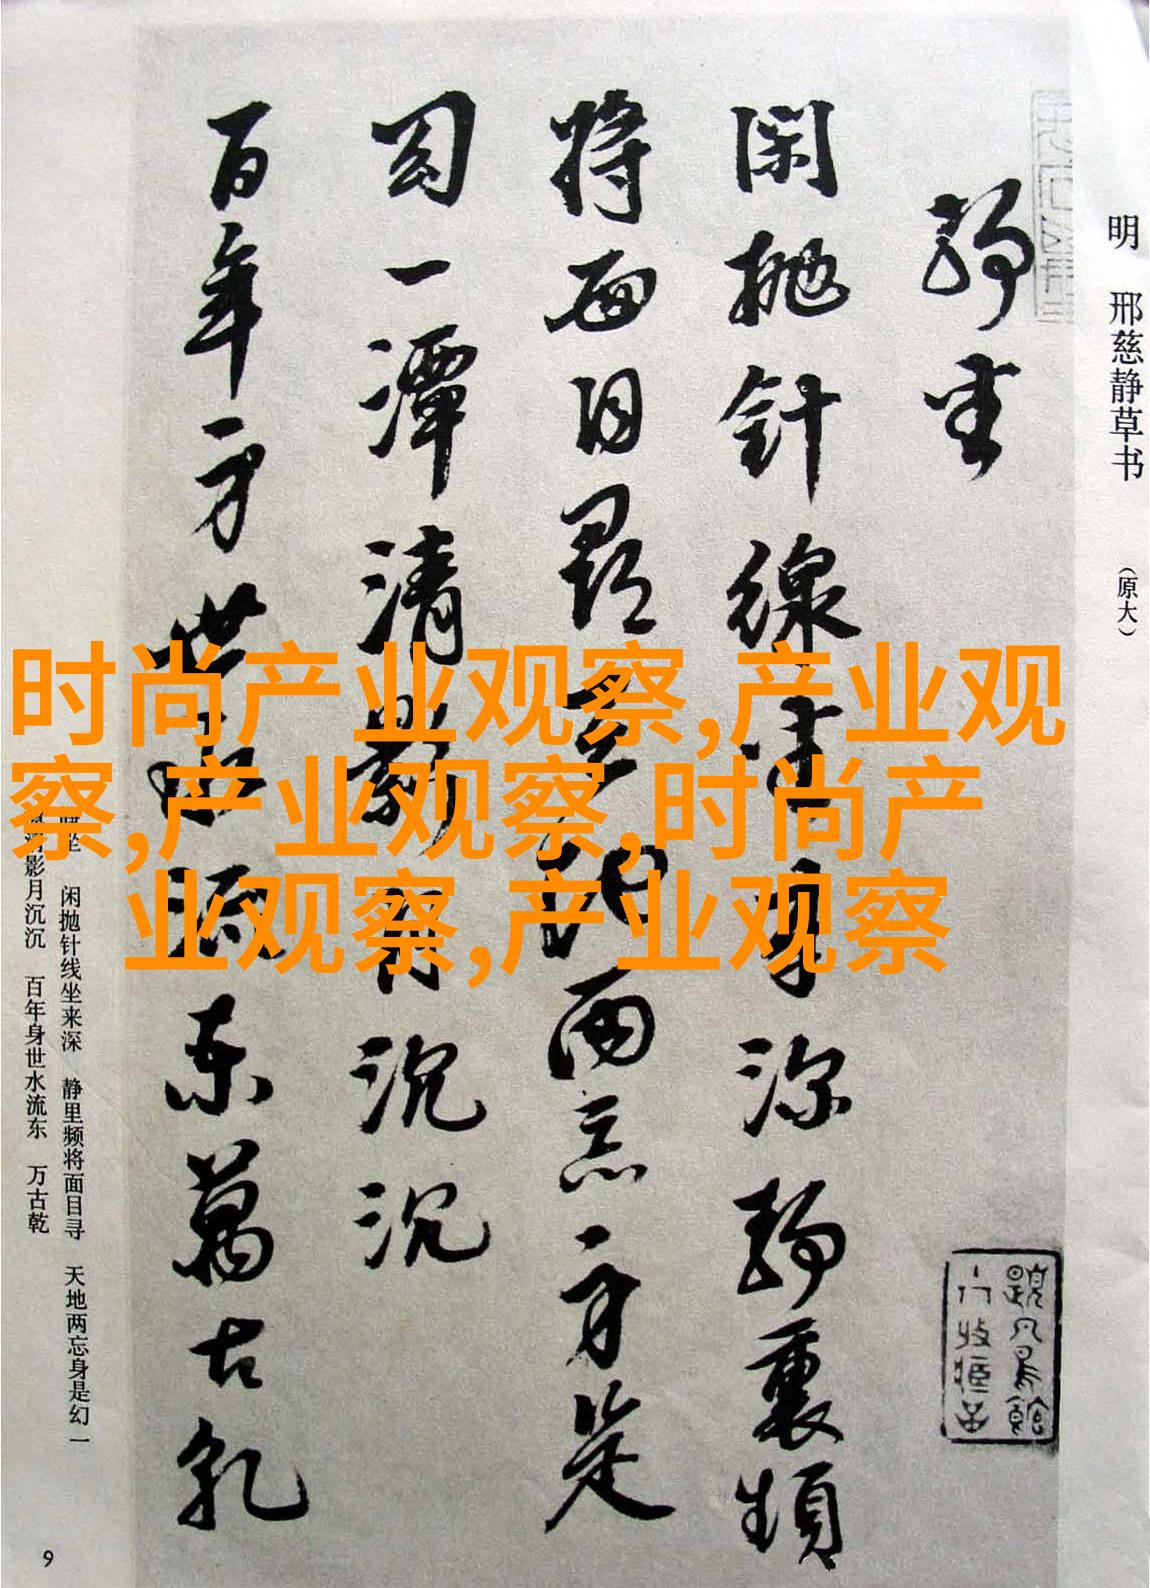 明 邢慈静草书 （原大）
静坐
闲抛针线坐来深静里频
将面目寻天地两忘身是
幻一潭清影月沉沉
百年身世水流东万古乾
时尚产业观察,产业观
察,产业观察,时尚产
业观察,产业观察
闲抛针线坐来深 静里频将面目寻 天地两忘身是幻 一
影月沉沉 百年身世水流东 万古乾
9